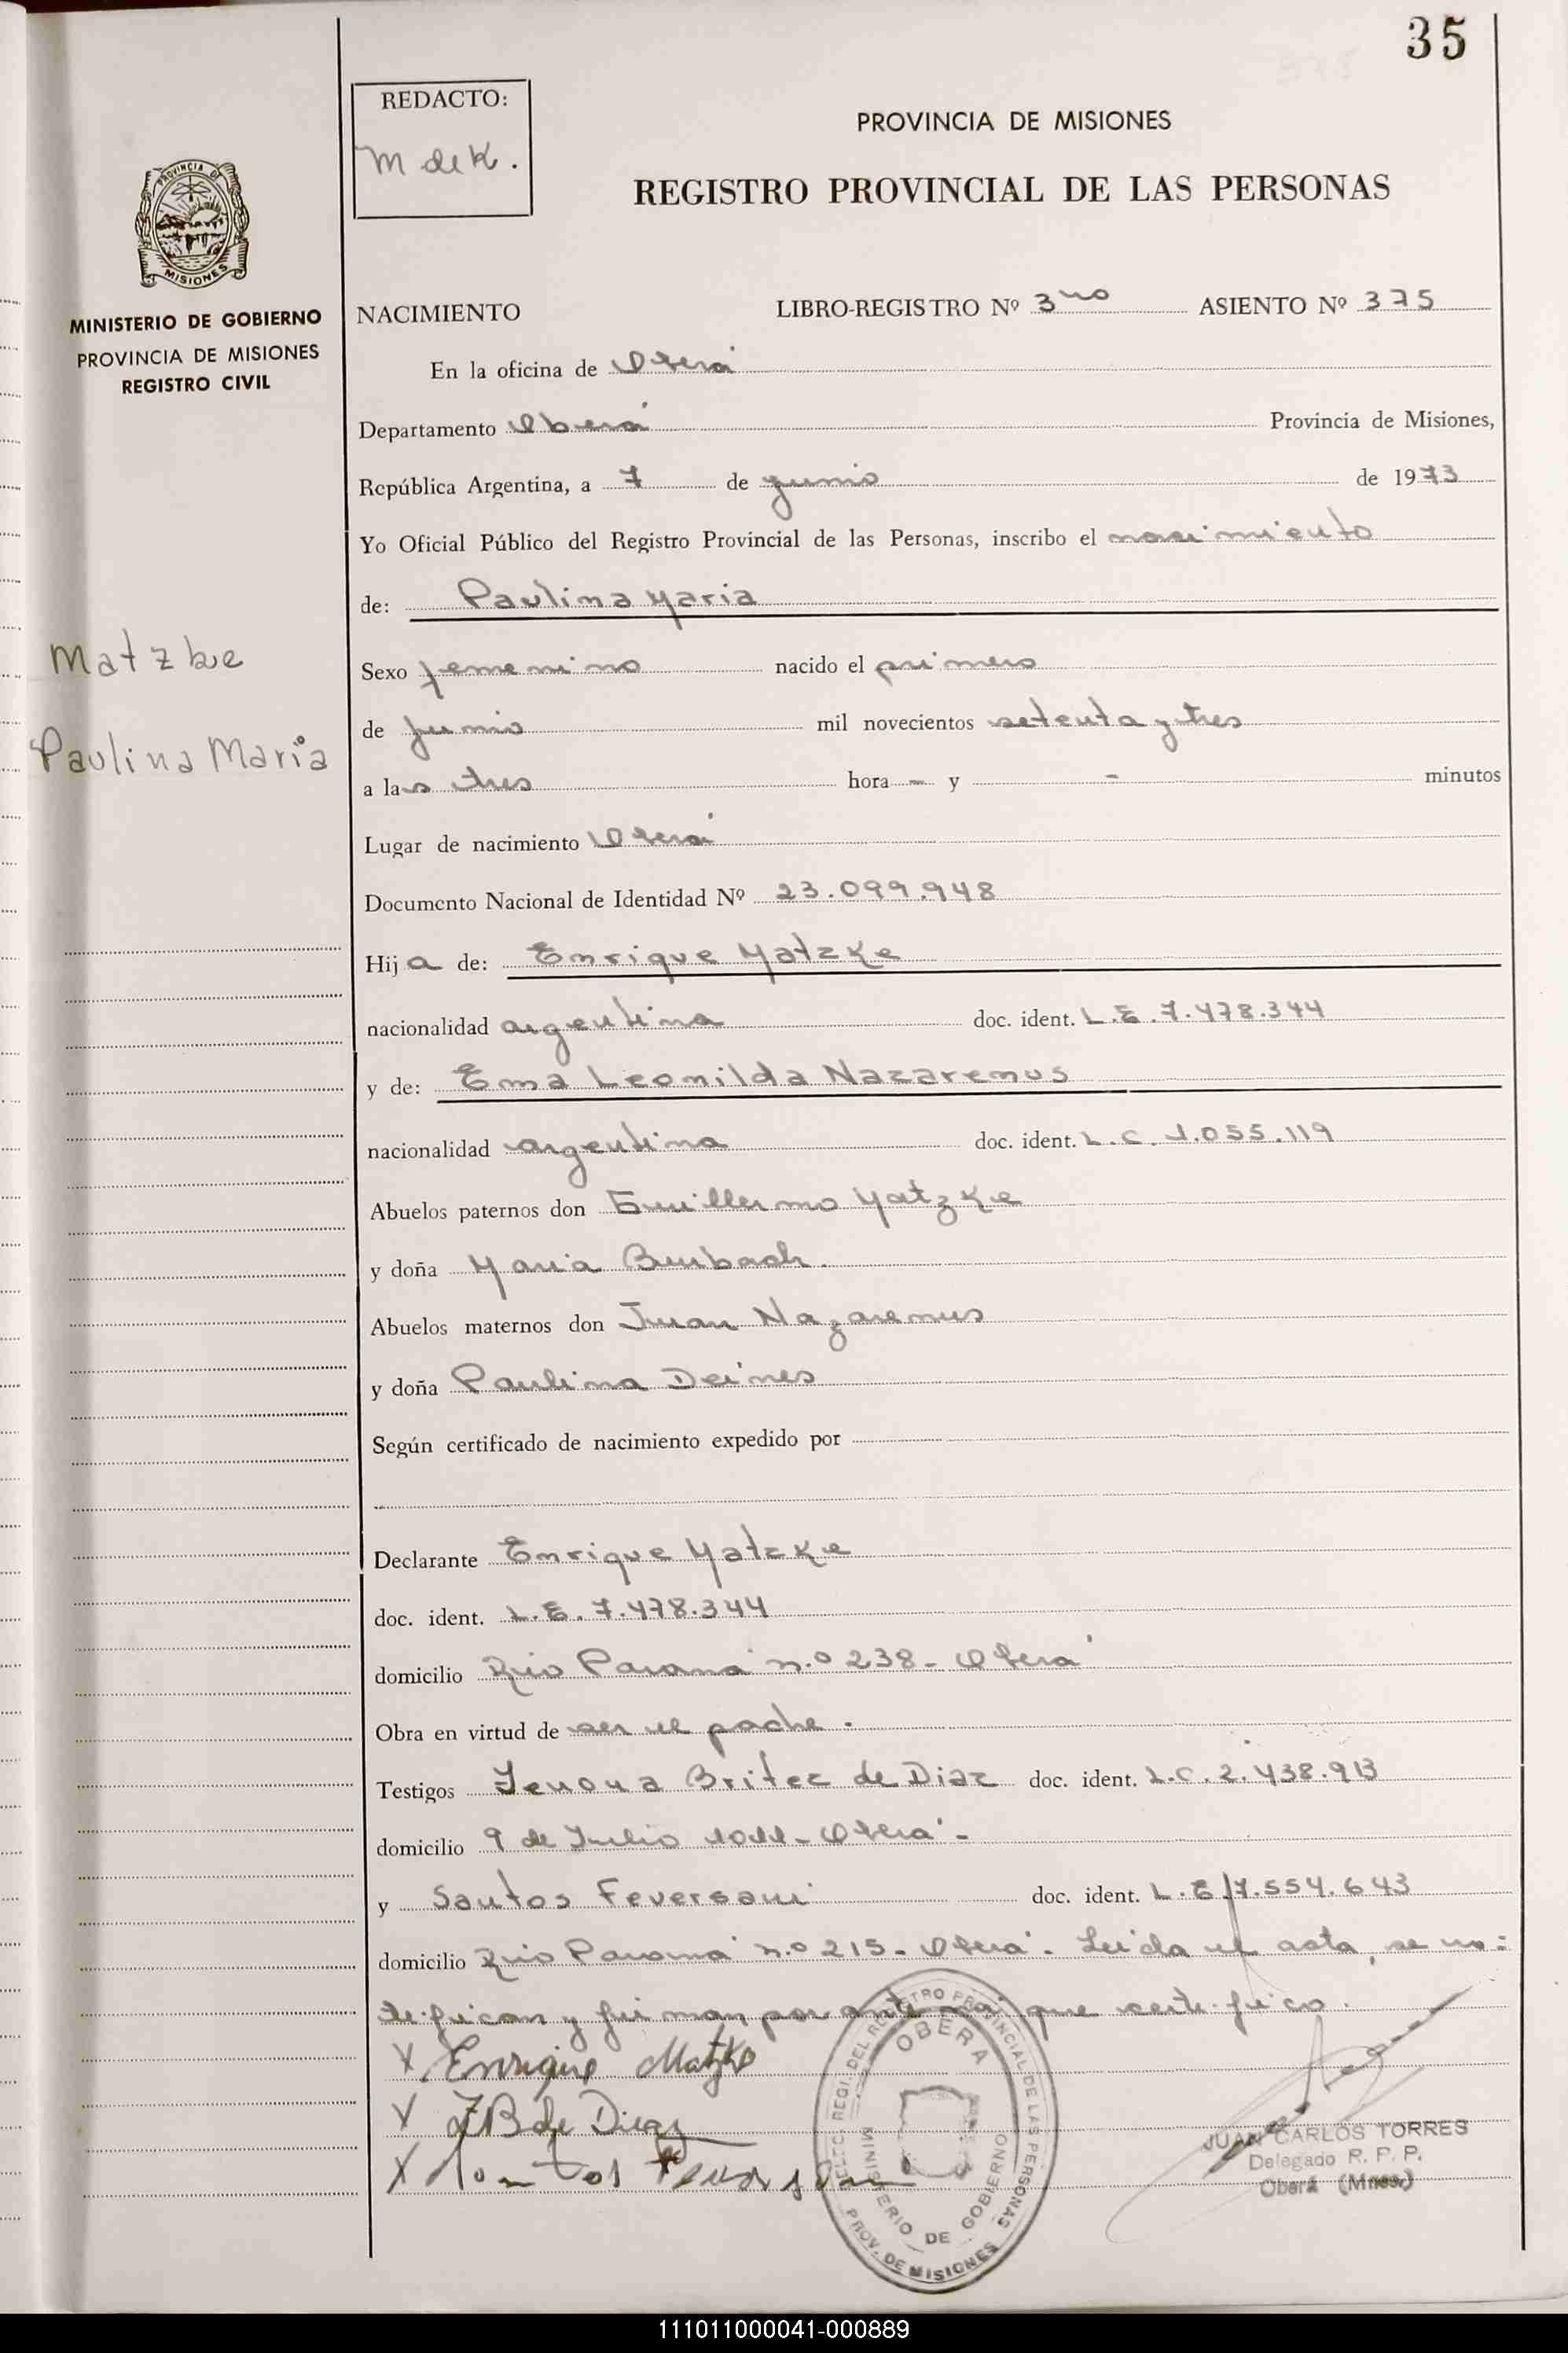 35
REDACTO:
M de K.
PROVINCIA DE MISIONES
REGISTRO PROVINCIAL DE LAS PERSONAS
PROVINCIA DE
MISIONES
MINISTERIO DE GOBIERNO
PROVINCIA DE MISIONES
REGISTRO CIVIL
NACIMIENTO LIBRO-REGISTRO Nº 3 ASIENTO Nº 375
En la oficina de Oberá
Departamento Oberá Provincia de Misiones,
República Argentina, a 7 de junio de 1973
Yo Oficial Público del Registro Provincial de las Personas, inscribo el nacimiento
de: Paulina Maria
Matzke
Paulina Maria
Sexo femenino nacido el primero
de junio mil novecientos setenta y tres
a las tres hora - y - minutos
Lugar de nacimiento Oberá
Documento Nacional de Identidad Nº 23.099.948
Hija de: Enrique Matzke
nacionalidad argentina doc. ident. L.E. 7.478.344
y de: Ema Leonilda Nazarenus
nacionalidad argentina doc. ident. L.C. 1.055.119
Abuelos paternos don Guillermo Matzke
y doña Maria
Abuelos maternos don Juan Nazarenus
y doña Paulina Deines
Según certificado de nacimiento expedido por
Declarante Enrique Matzke
doc. ident. L.E. 7.478.344
domicilio Rio Paraná n.º 238 - Oberá
Obra en virtud de ser el padre.
Testigos Britez de Diaz doc. ident. L.C. 2.438.913
domicilio 9 de Julio 1011 - Oberá -
y Santos Feversani doc. ident. L.E. 7.554.643
domicilio Rio Paraná n.º 215 - Oberá. Leida el acta, se no=
tifican y firman por ante mí que certifico.
X Enrique Matzke
X ZB de Diaz
X Santos
DELEG. REGI. DEL REGISTRO PROVINCIAL DE LAS PERSONAS
OBERA
MINISTERIO DE GOBIERNO
PROV. DE MISIONES
JUAN CARLOS TORRES
Delegado R. P. P.
Oberá (Mnes.)
111011000041-000889